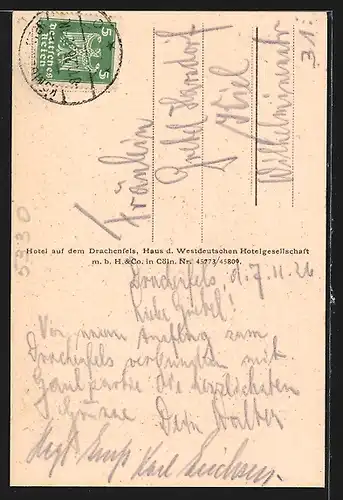 5 5
Deutsches
Reich
Fräulein
Gretel Harsdorf
Kiel
Wilhelminenstr
31.
5330
Hotel auf dem Drachenfels, Haus d. Westdeutschen Hotelgesellschaft
m. b. H. & Co. in Cöln. Nr. 45773/45809.
Drachenfels, d. 7. 11. 26
Liebe Gretel!
Von unserem Ausflug zum
Drachenfels verbunden mit
die herzlichsten
Grüsse Dein Walter
Karl